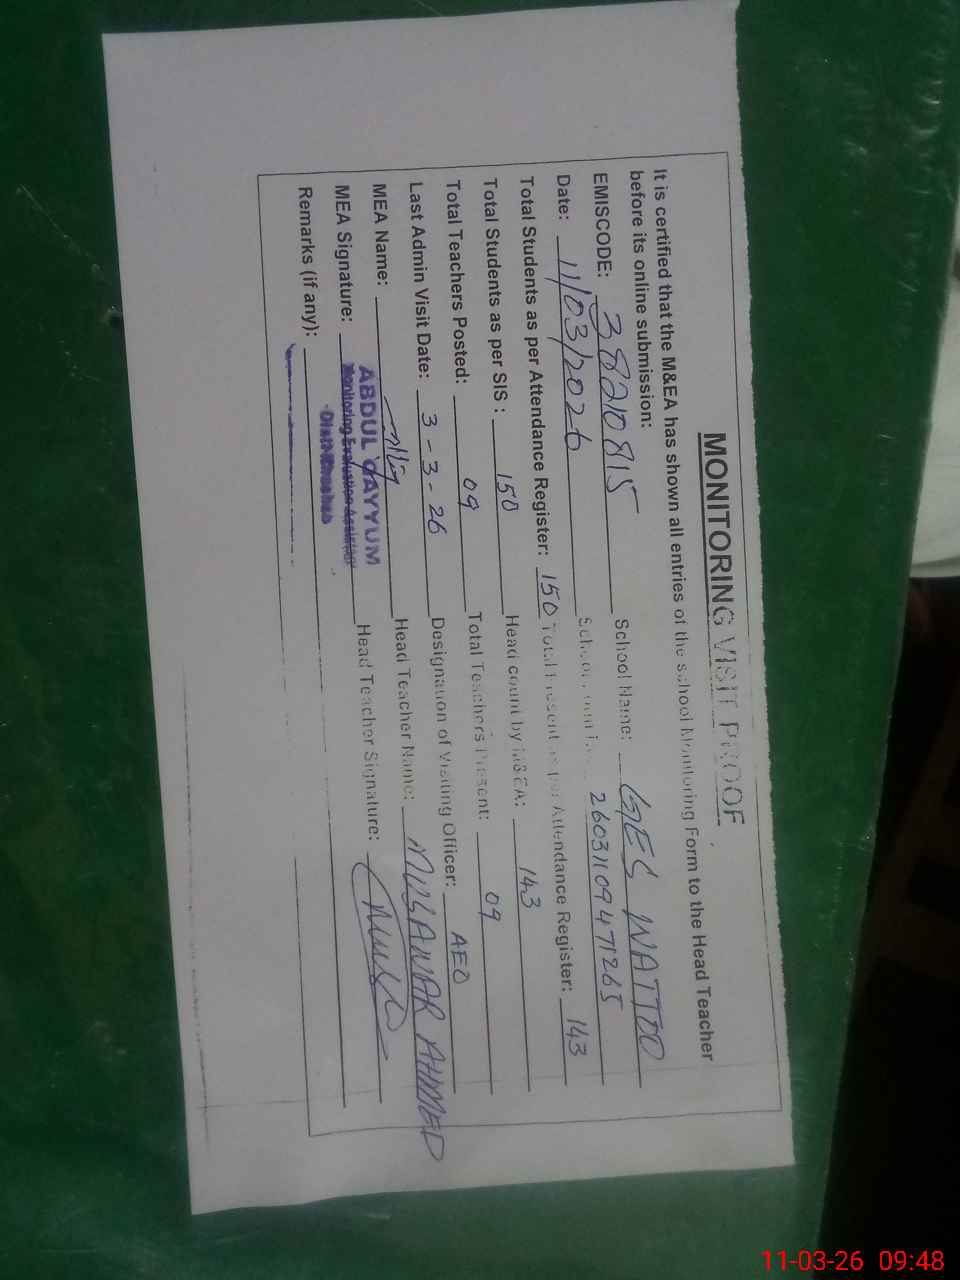 MONITORING VISIT PROOF
It is certified that the M&EA has shown all entries of the school Monitoring Form to the Head Teacher
before its online submission:
EMISCODE: 38210815 School Name: GES WATTOO
Date: 11/03/2026 School 26031109471265
Total Students as per Attendance Register: 150 Total Present as per Attendance Register: 143
Total Students as per SIS : 150 Head count by M&EA: 143
Total Teachers Posted: 09 Total Teachers Present: 09
Last Admin Visit Date: 3-3-26 Designation of Visiting Officer: AEO
MEA Name: Head Teacher Name: AHMED
MEA Signature: ABDUL QAYYUM Head Teacher Signature:
Monitoring Evaluation Assistant
Remarks (if any):
11-03-26 09:48